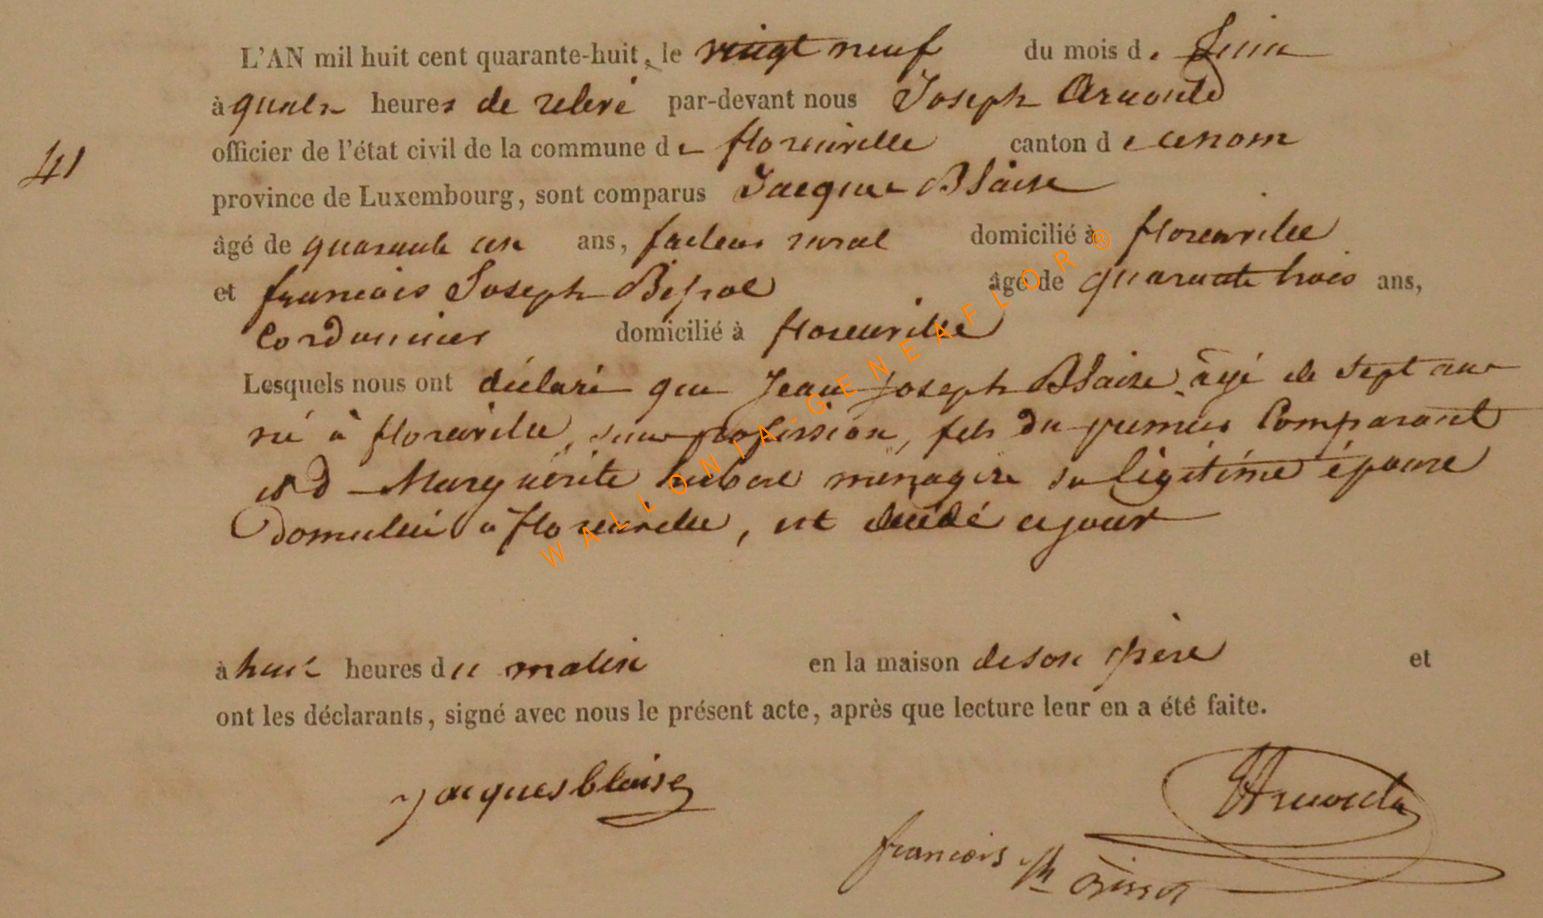 L'AN mil huit cent quarante-huit, le vingt neuf du mois de Juin
à quatre heures de relevé par-devant nous Joseph Arnould
41
officier de l'état civil de la commune de florenville canton de
province de Luxembourg, sont comparus Jacques Blaise
âgé de quarante un ans, facteur rural domicilié à florenville
et francois Joseph Bissot âgé de quarante trois ans,
Cordonnier domicilié à florenville
Lesquels nous ont déclaré que Jean Joseph Blaise, âgé de sept ans
né à florenville, sans profession, fils du premier Comparant
et d Marguérite hubert ménagère sa légitime épouse
domicilié à florenville, est décédé ce jour
à huit heures du matin en la maison de son père et
ont les déclarants, signé avec nous le présent acte, après que lecture leur en a été faite.
jacques blaise
Arnould
francois jh Bissot
WALLONIA-GENEAFLOR®